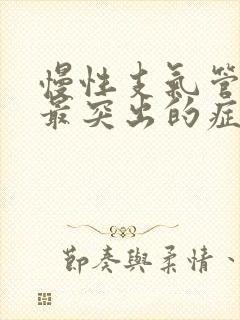 慢性支氣管
最突出的症
節奏與柔情、